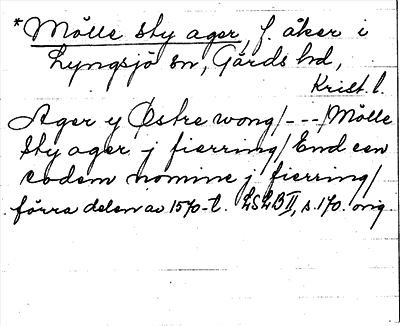 *Mölle sty ager, f. åker i
Lyngsjö sn, Gärds hd,
Krist. l.
Ager y Østre wong/---/Mölle
sty ager j fierring/ End een
eodem nomine j fierring/
förra delen av 1570-t. LSLB II, s. 170. orig.